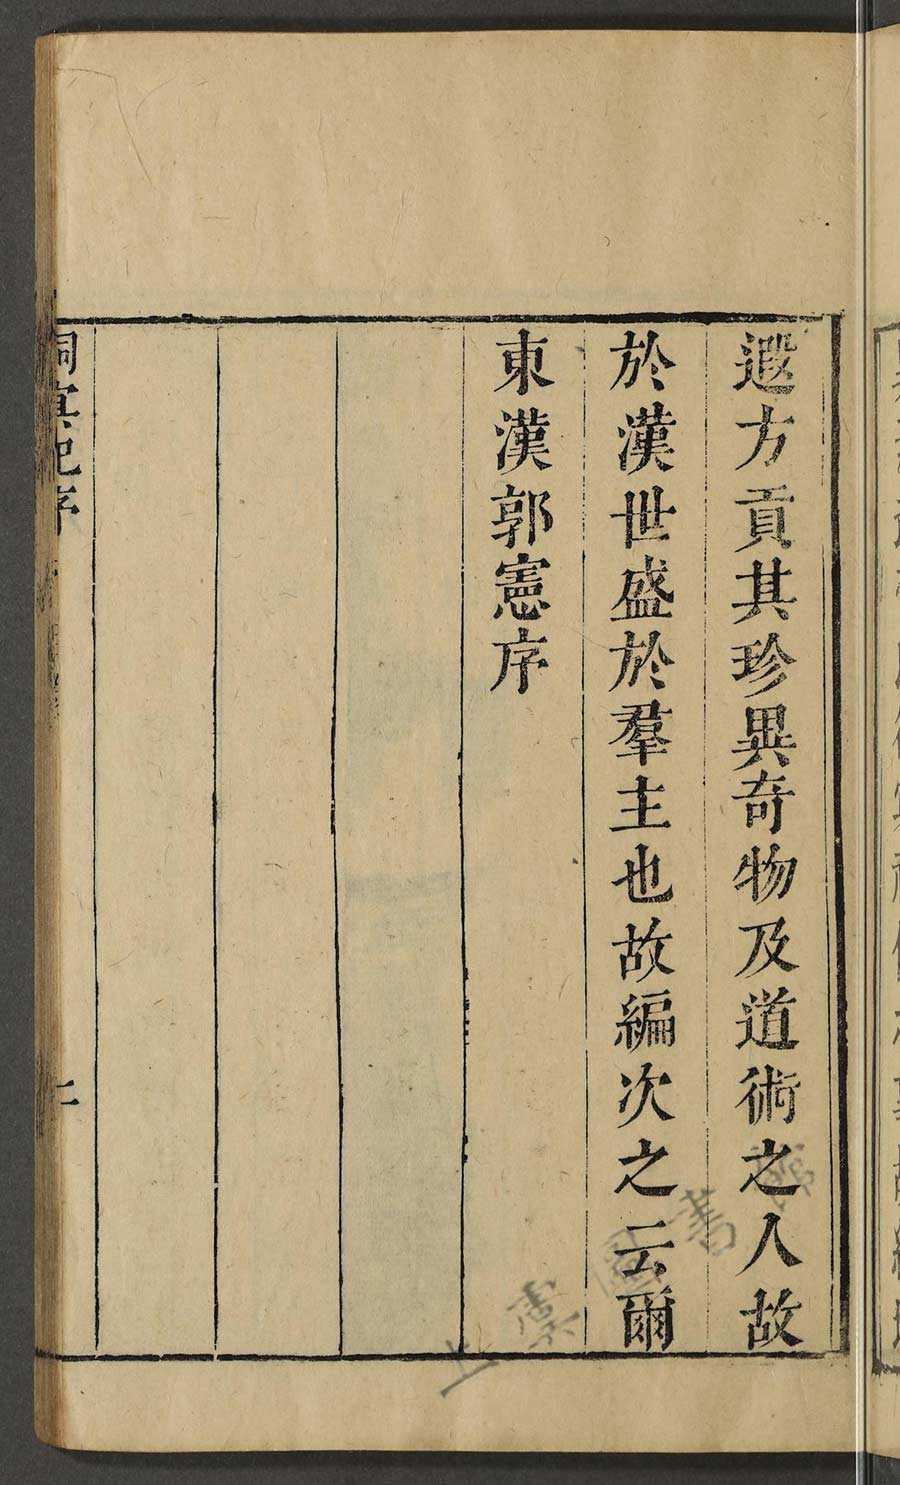 遐方貢其珍異奇物及道術之人故
於漢世盛於羣主也故編次之云爾
東漢郭憲序
洞冥記序
上虞圖書館